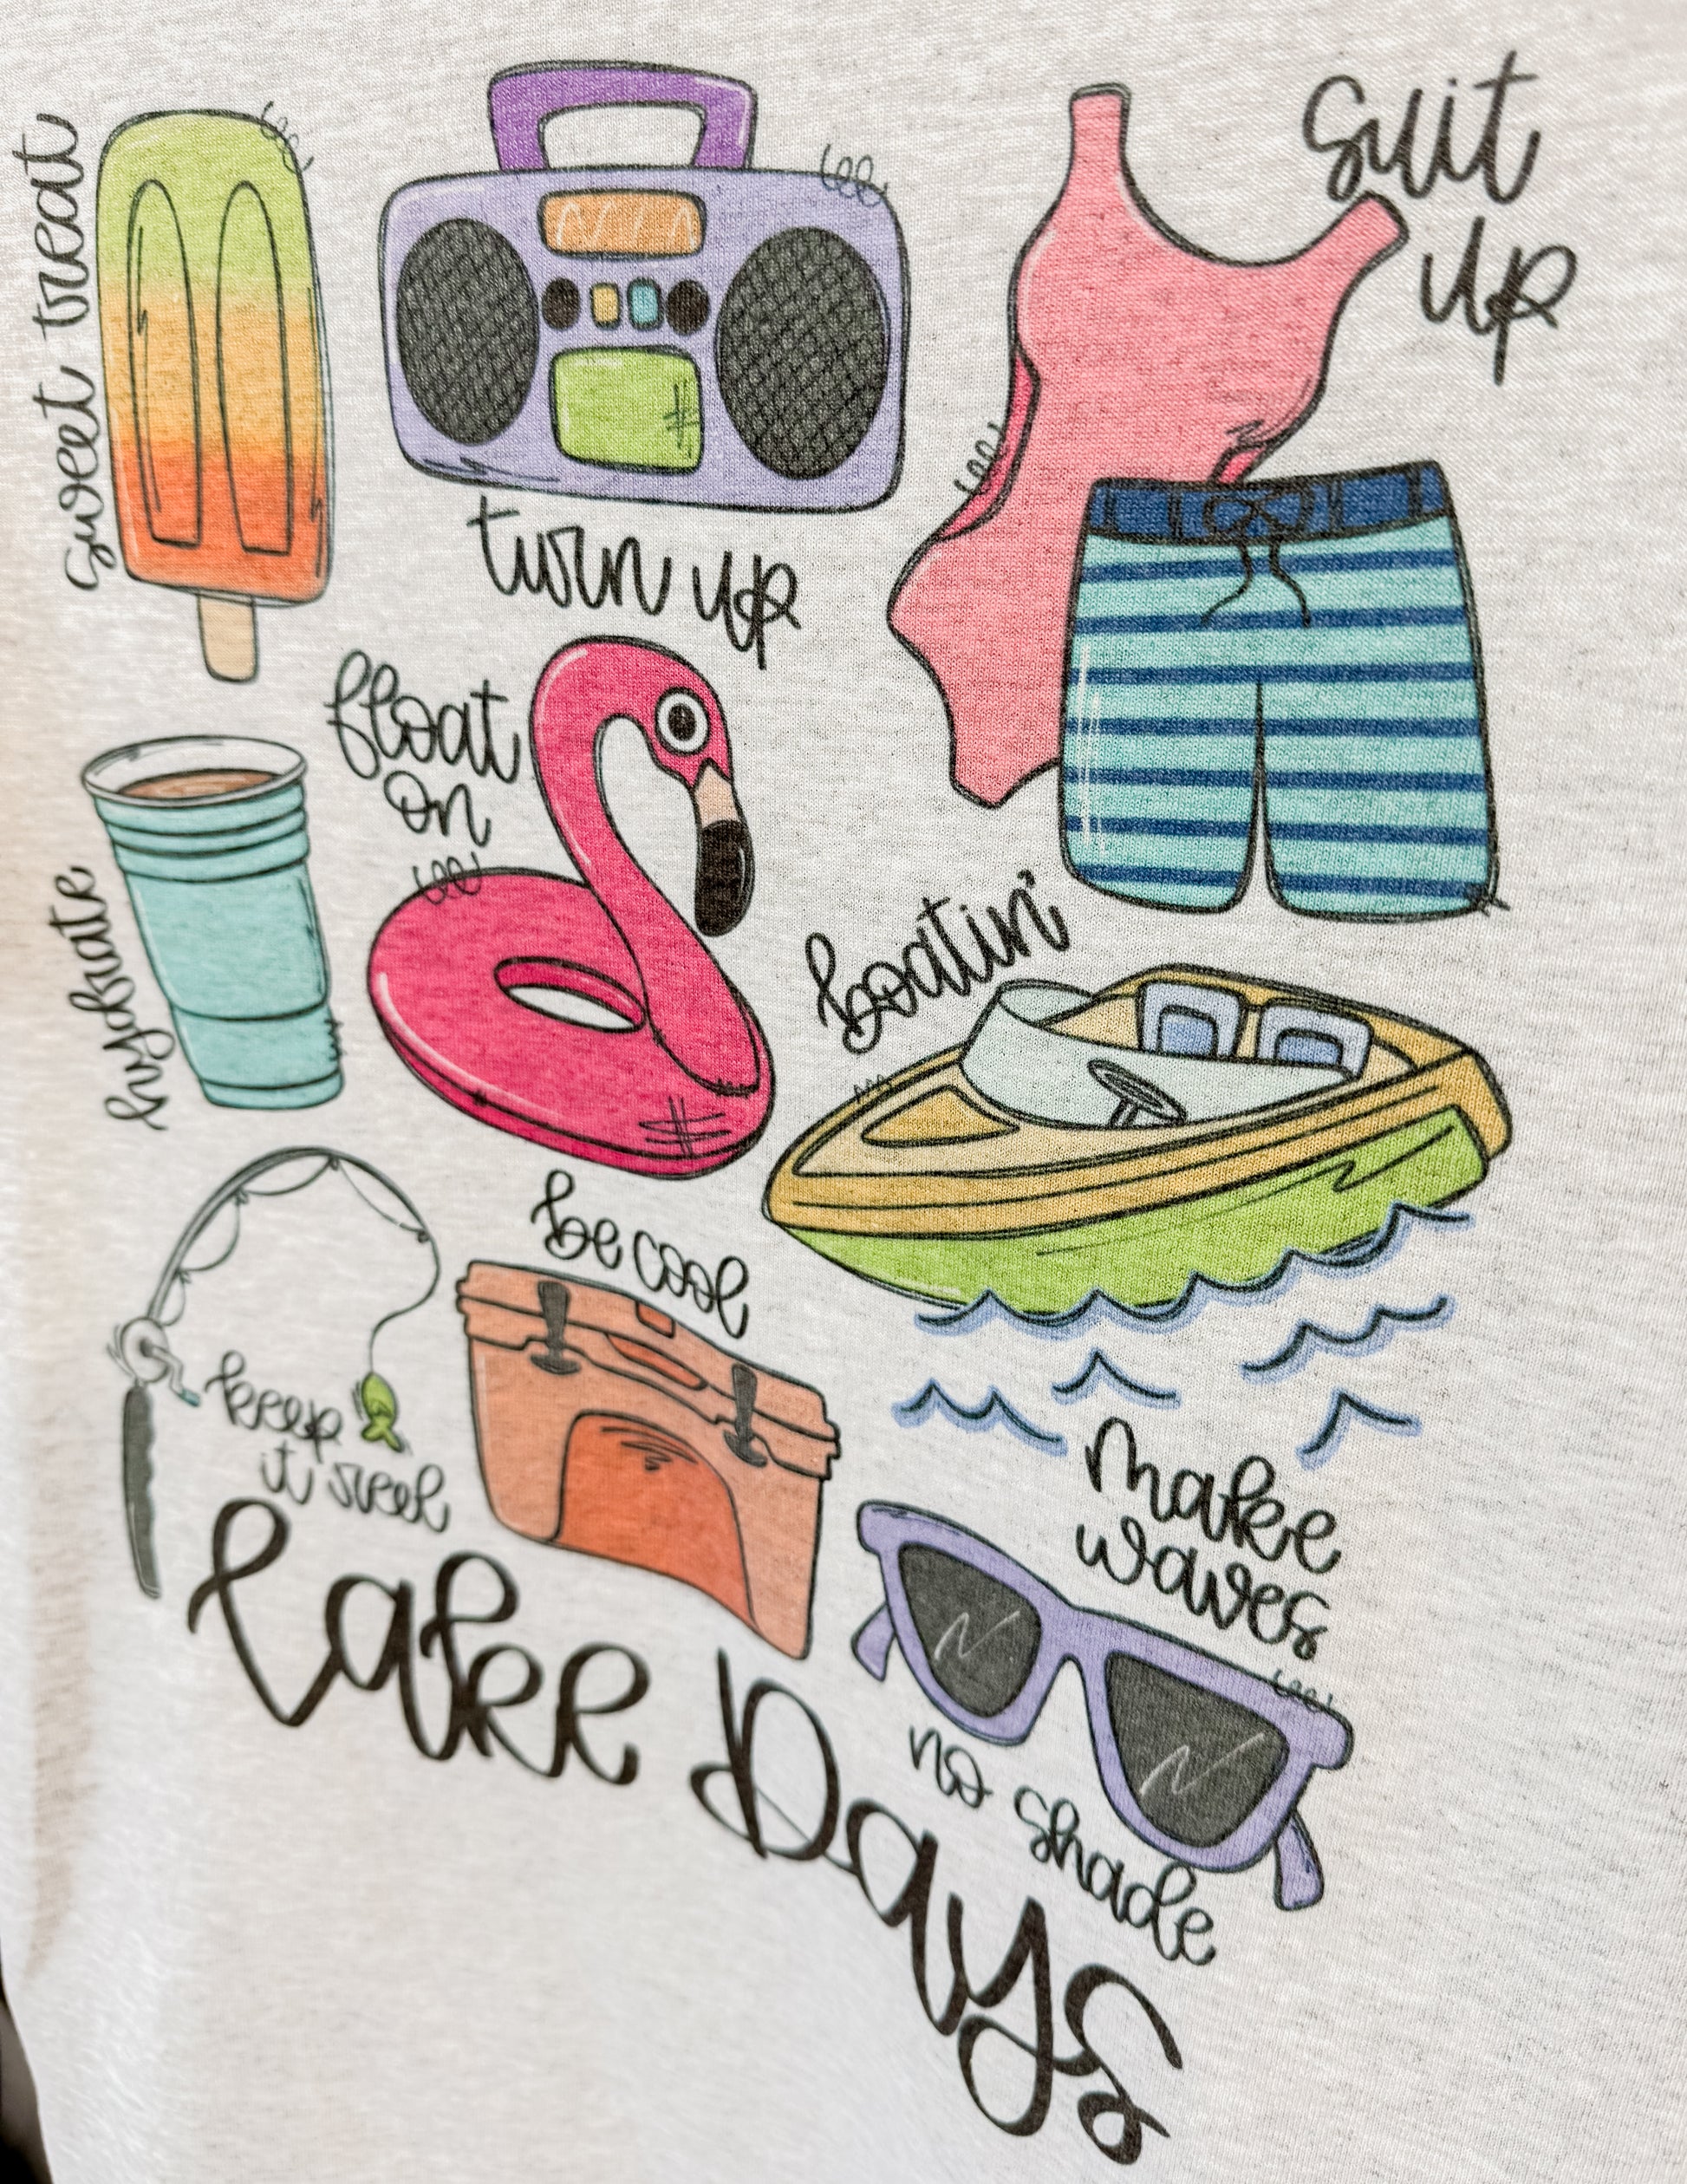 sweet treat
turn up
suit
up
float
on
hydrate
boatin'
be cool
keep
it reel
make
waves
no shade
Lake Days